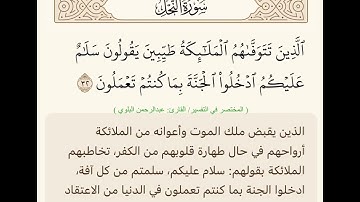 سُورَةُ النَّحْلِ
ٱلَّذِينَ تَتَوَفَّىٰهُمُ ٱلْمَلَـٰٓئِكَةُ طَيِّبِينَ يَقُولُونَ سَلَـٰمٌ
عَلَيْكُمُ ٱدْخُلُوا۟ ٱلْجَنَّةَ بِمَا كُنتُمْ تَعْمَلُونَ ٣٢
( المختصر في التفسير/ القارئ: عبدالرحمن البلوي )
الذين يقبض ملك الموت وأعوانه من الملائكة
أرواحهم في حال طهارة قلوبهم من الكفر، تخاطبهم
الملائكة بقولهم: سلام عليكم، سلمتم من كل آفة،
ادخلوا الجنة بما كنتم تعملون في الدنيا من الاعتقاد